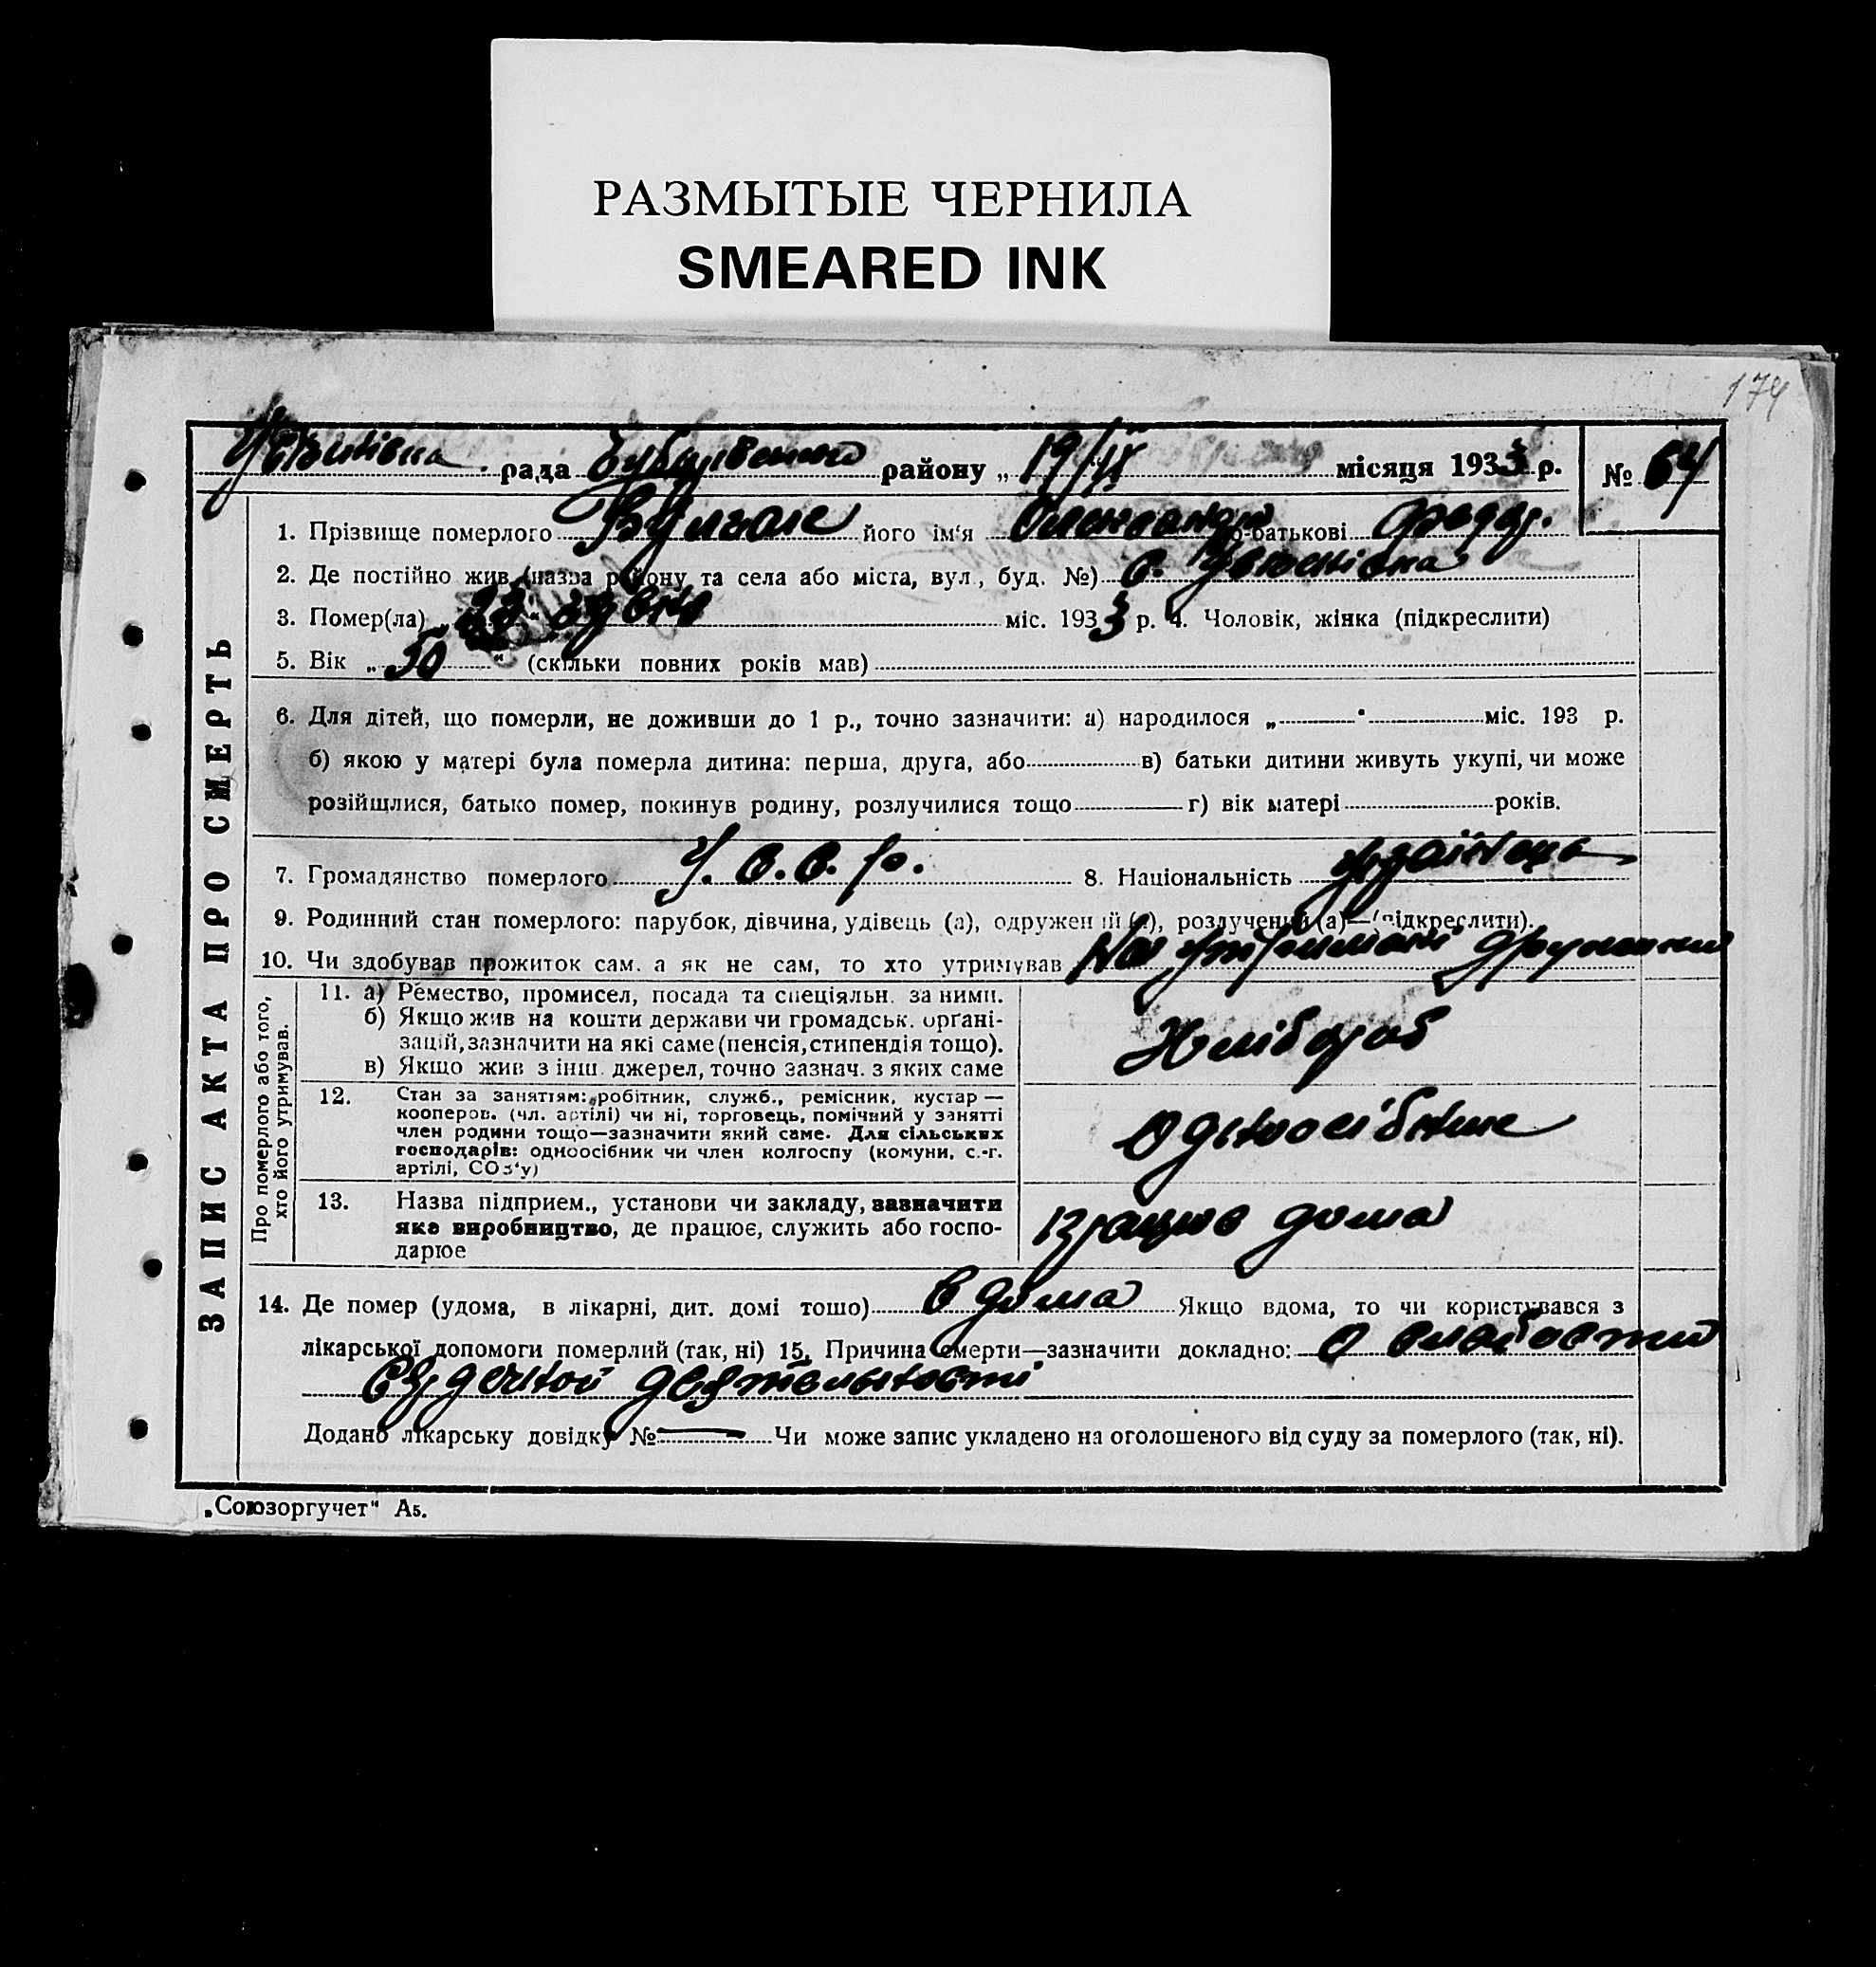 РАЗМЫТЫЕ ЧЕРНИЛА
SMEARED INK
174
рада району „ 19/IX місяця 1933 р. № 64
ЗАПИС АКТА ПРО СМЕРТЬ
1. Прізвище померлого його ім‘я Олександра по-батькові Федор.
2. Де постійно жив (назва району та села або міста, вул., буд. №) с.
3. Помер(ла) міс. 1933 р. 4. Чоловік, жінка (підкреслити)
5. Вік „ 50 “ (скільки повних років мав)
6. Для дітей, що померли, не доживши до 1 р., точно зазначити: а) народилося „ “ міс. 193 р.
б) якою у матері була померла дитина: перша, друга, або в) батьки дитини живуть укупі, чи може
розійшлися, батько помер, покинув родину, розлучилися тощо г) вік матері років.
7. Громадянство померлого У.С.С.р. 8. Національність
9. Родинний стан померлого: парубок, дівчина, удівець (а), одружений (а), розлучений (а)—(підкреслити).
10. Чи здобував прожиток сам, а як не сам, то хто утримував На
Про померлого або того,
хто його утримував.
11. а) Ремество, промисел, посада та спеціяльн. за ними.
б) Якщо жив на кошти держави чи громадськ. органі-
зацій, зазначити на які саме (пенсія, стипендія тощо).
в) Якщо жив з інш. джерел, точно зазнач. з яких саме
Хлібороб
12. Стан за заняттям: робітник, служб., ремісник, кустар—
кооперов. (чл. артілі) чи ні, торговець, помічний у занятті
член родини тощо—зазначити який саме. Для сільських
господарів: одноосібник чи член колгоспу (комуни, с.-г.
артілі, СОЗ‘у)
Одноосібник
13. Назва підприєм., установи чи закладу, зазначити
яке виробництво, де працює, служить або госпо-
дарює
працює дома
14. Де помер (удома, в лікарні, дит. домі тошо) в дома Якщо вдома, то чи користувався з
лікарської допомоги померлий (так, ні) 15. Причина смерти—зазначити докладно: о слабости
Додано лікарську довідку № — Чи може запис укладено на оголошеного від суду за померлого (так, ні).
„Союзоргучет“ А5.